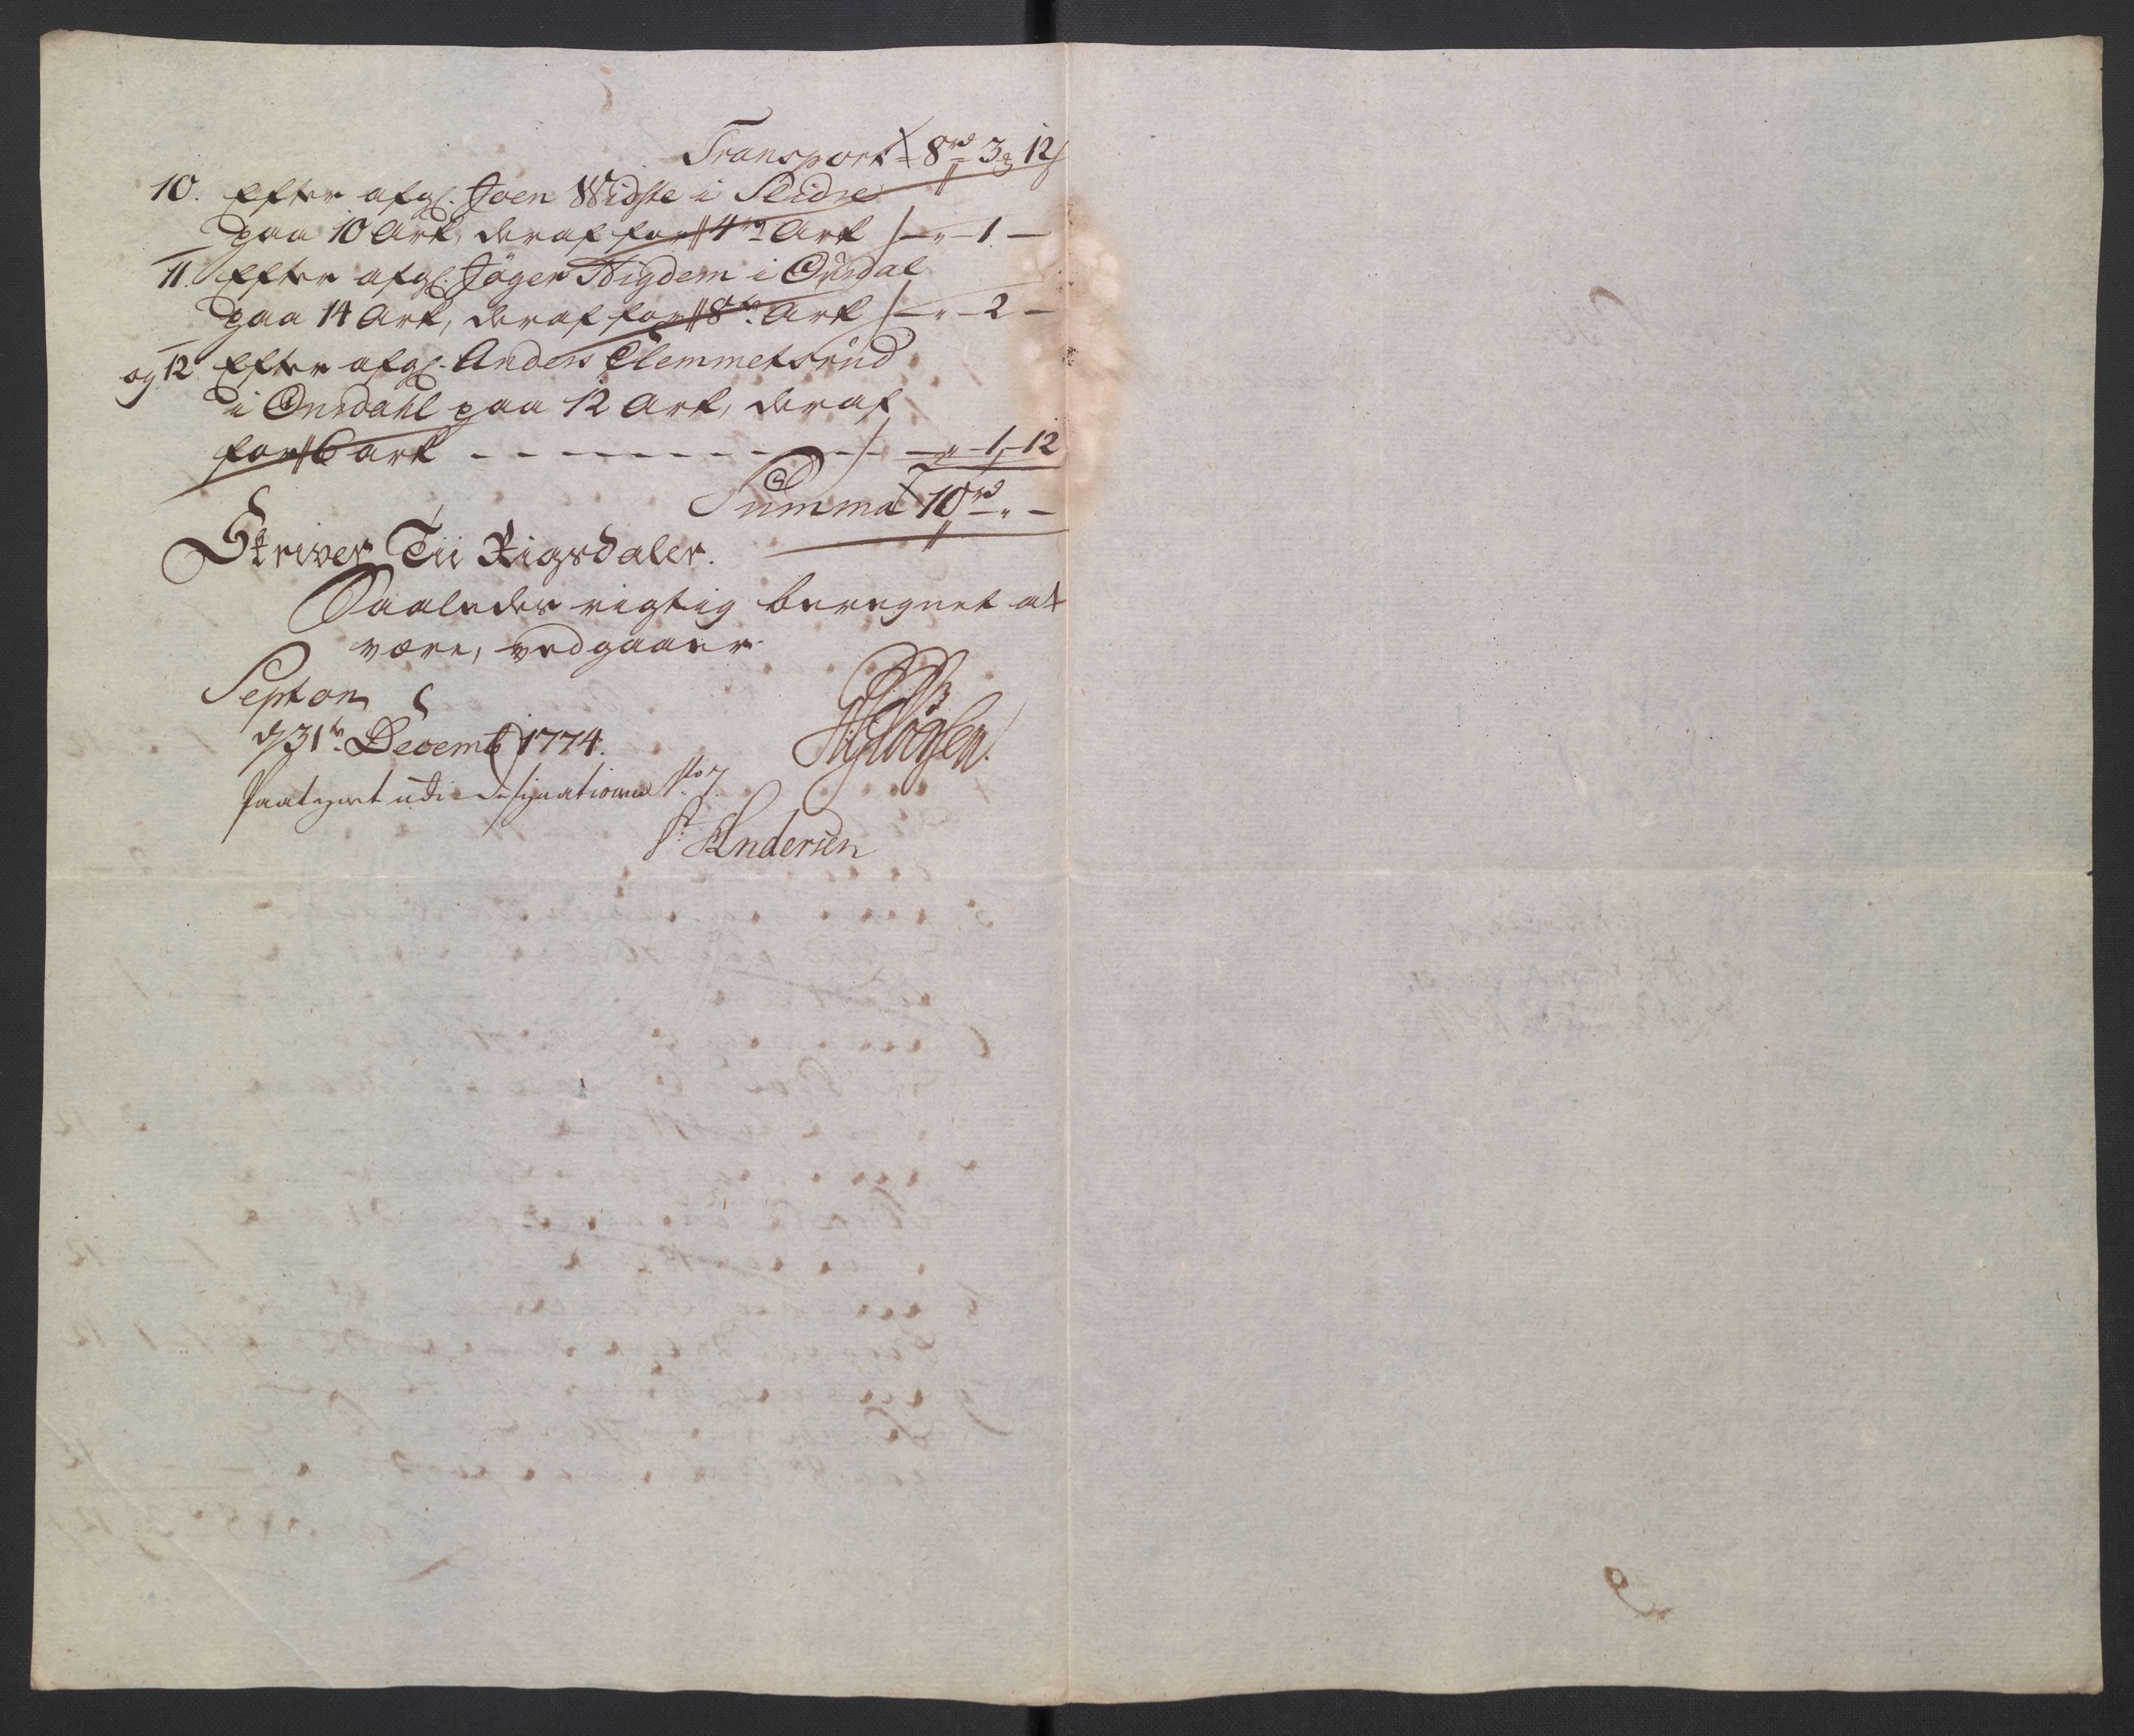 Transport 8rd 3 12
10. Efter afg. Joen Widste i Slidre
paa 10 Ark, deraf for 4re Ark — 1 —
11. Efter afg. i Ourdal
paa 14 Ark, deraf for 8te Ark — 2 —
og 12 Efter afg. Anders Clemmetsrud
i Ourdahl paa 12 Ark, deraf
for 6 ark — 1 — 12
Summa 10rd
Skriver Tii Rigsdaler.
Saaledes rigtig beregnet at
være, vedgaaer
Septon
d 31te Decemb 1774.
Paategnet udi designationen
Andersen